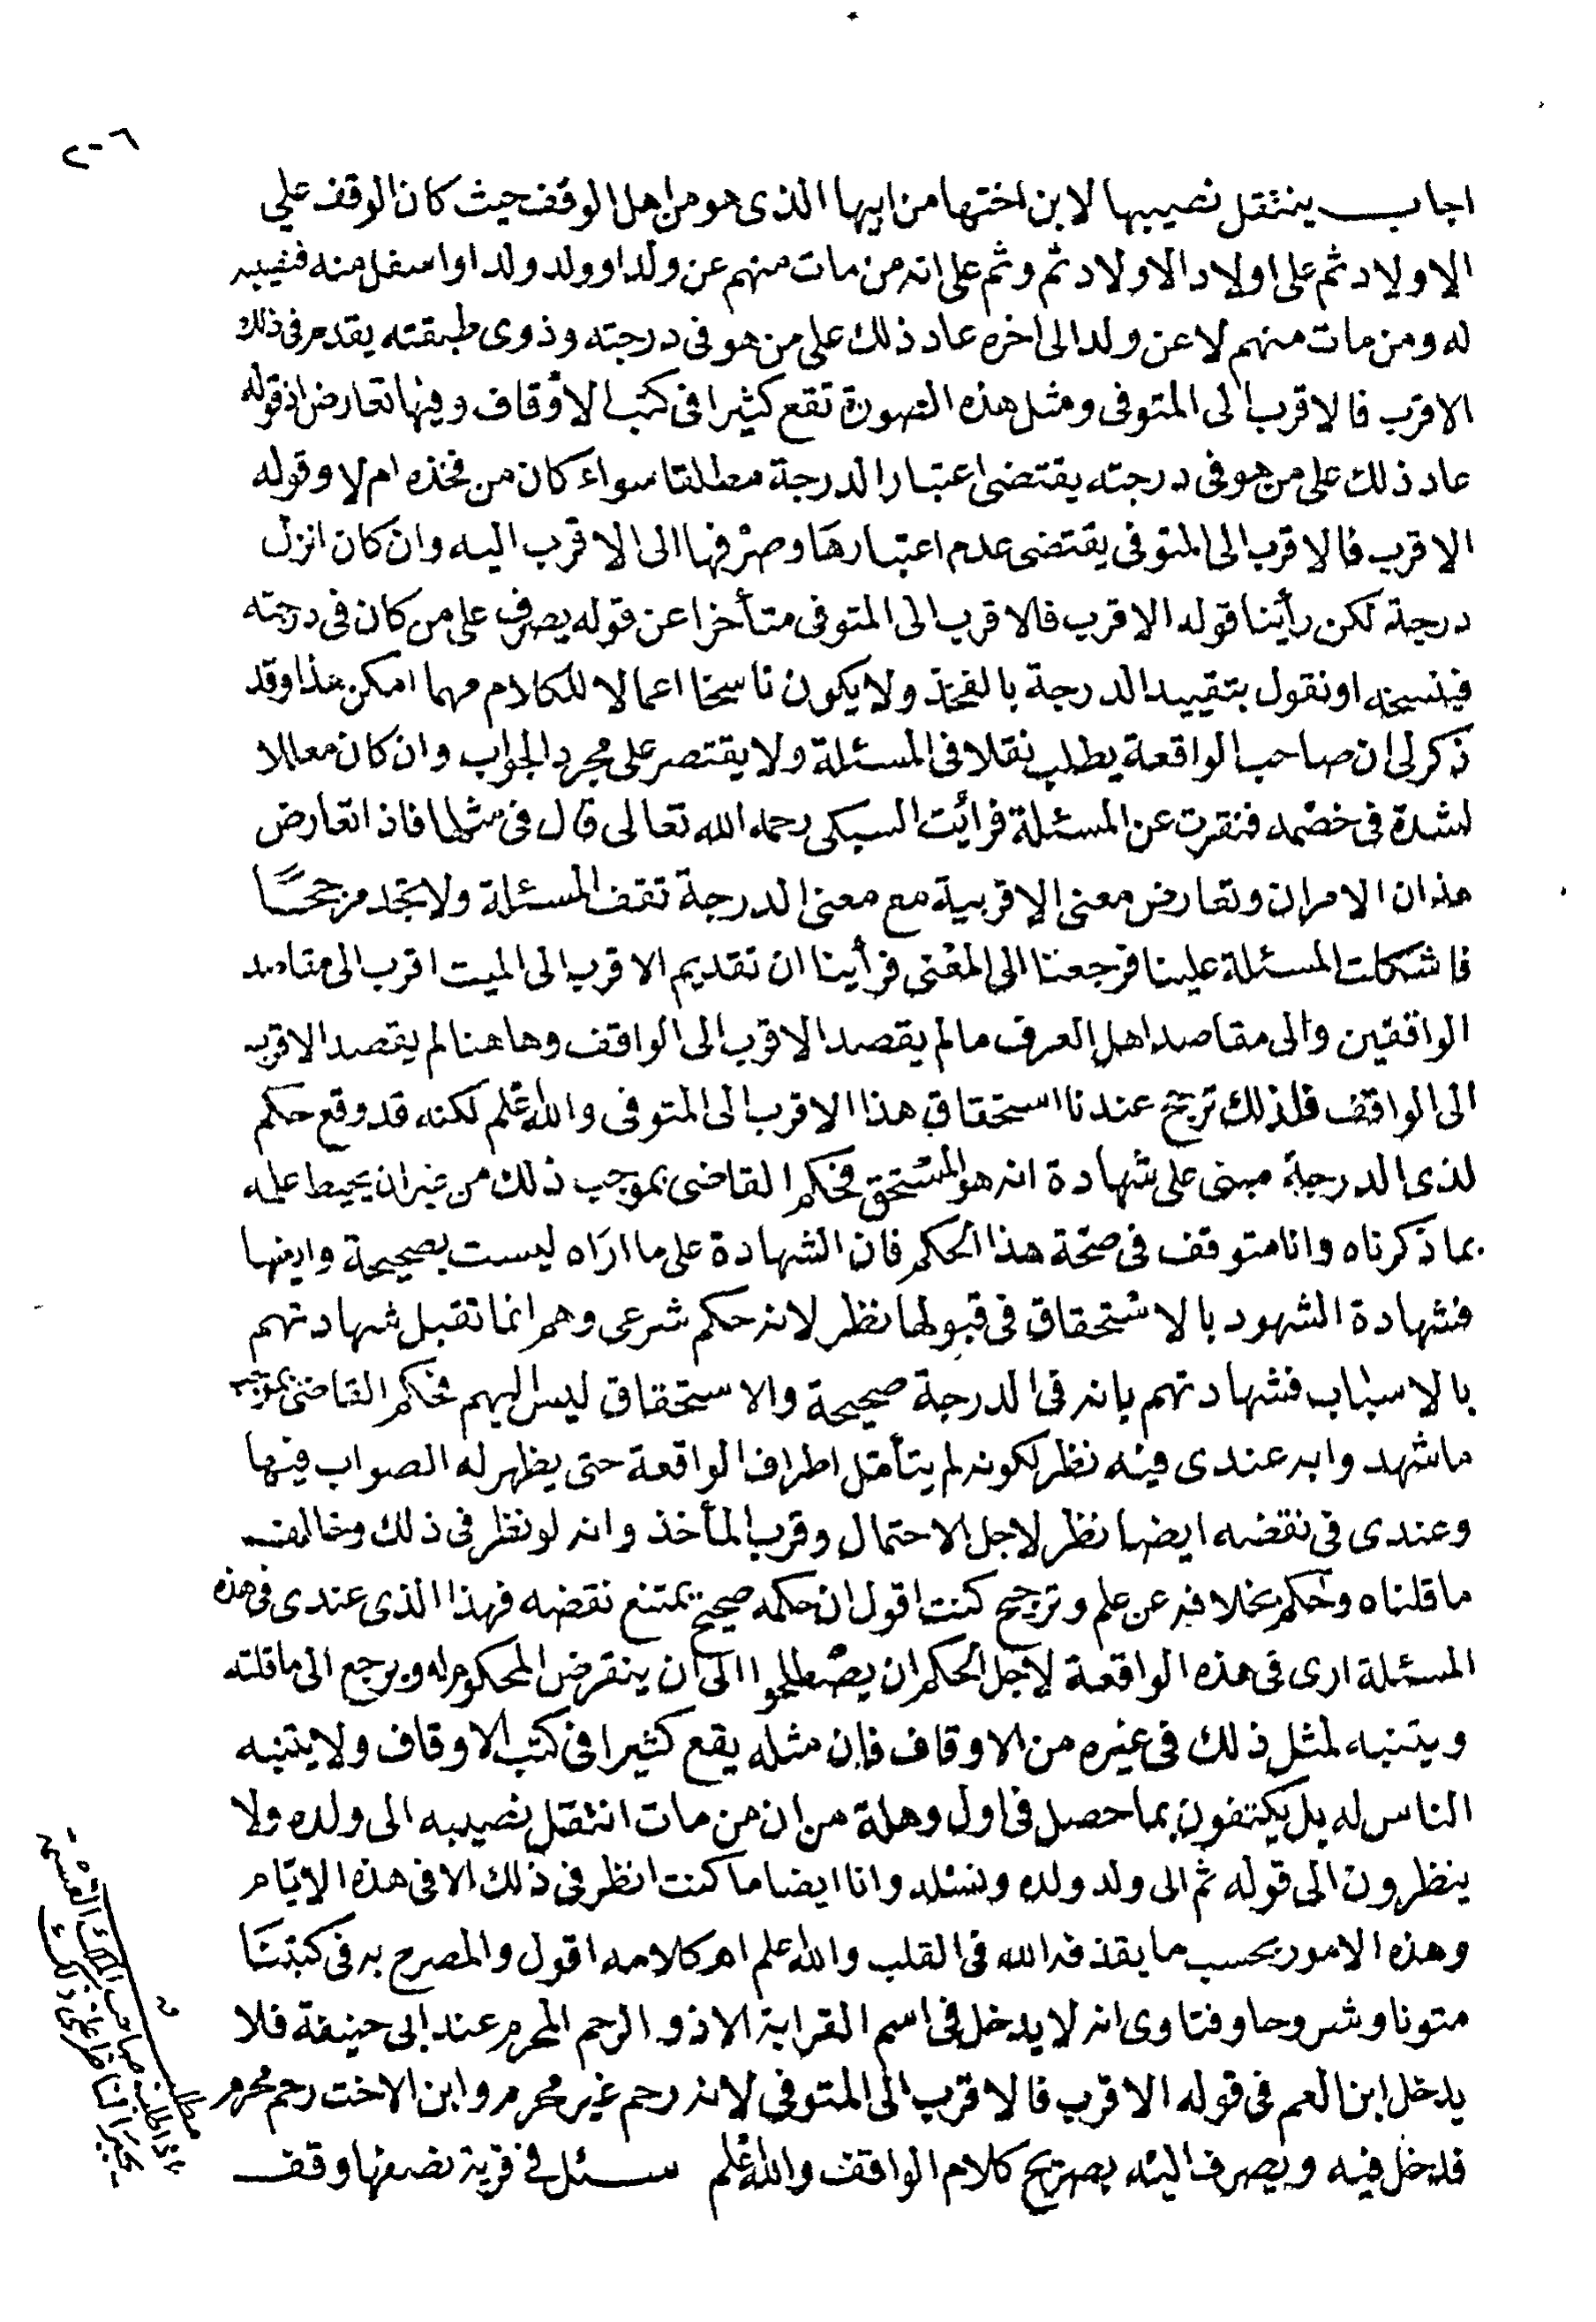 ٢٠٦
اجاب ينتقل نصيبها لابن اختها من ابيها الذى هو من اهل الوقف حيث كان الوقف على
الاولاد ثم على اولاد الاولاد ثم وثم على انه من مات منهم عن ولد او ولد ولد او اسفل منه فنصيبه
له ومن مات منهم لا عن ولد الى اخره عاد ذلك على من هو فى درجته وذوى طبقته يقدم فى ذلك
الاقرب فالاقرب الى المتوفى ومثل هذه الصورة تقع كثيرا فى كتب الاوقاف وفيها تعارض اذ قوله
عاد ذلك على من هو فى درجته يقتضى اعتبار الدرجة مطلقا سواء كان من فخذه ام لا وقوله
الاقرب فالاقرب الى المتوفى يقتضى عدم اعتبارها وصرفها الى الاقرب اليه وان كان انزل
درجة لكن رأينا قوله الاقرب فالاقرب الى المتوفى متأخرا عن قوله يصرف على من كان فى درجته
فينسخه او نقول بتقييد الدرجة بالفخذ ولا يكون ناسخا اعمالا للكلام مهما امكن هذا وقد
ذكر لى ان صاحب الواقعة يطلب نقلا فى المسئلة ولا يقتصر على مجرد الجواب وان كان معللا
لشدة فى خصمه فنقرت عن المسئلة فرأيت السبكى رحمه الله تعالى قال فى مثلها فاذا تعارض
هذان الامران وتعارض معنى الاقربية مع معنى الدرجة تقف المسئلة ولا تجد مرجحًا
فاشكلت المسئلة علينا فرجعنا الى المعنى فرأينا ان تقديم الاقرب الى الميت اقرب الى مقاصد
الواقفين والى مقاصد اهل العرف ما لم يقصد الاقرب الى الواقف وهاهنا لم يقصد الاقرب
الى الواقف فلذلك ترجح عندنا استحقاق هذا الاقرب الى المتوفى والله اعلم لكنه قد وقع حكم
لذى الدرجة مبنى على شهادة انه هو المستحق فحكم القاضى بموجب ذلك من غير ان يحيط علمه
بما ذكرناه وانا متوقف فى صحة هذا الحكم فان الشهادة على ما اراه ليست بصحيحة وايضا
فشهادة الشهود بالاستحقاق فى قبولها نظر لانه حكم شرعى وهم انما تقبل شهادتهم
بالاسباب فشهادتهم بانه فى الدرجة صحيحة والاستحقاق ليس اليهم فحكم القاضى بموجب
ما شهدوا به عندى فيه نظر لكونه لم يتأمل اطراف الواقعة حتى يظهر له الصواب فيها
وعندى فى نقضه ايضا نظر لاجل الاحتمال وقرب المأخذ وانه لو نظر فى ذلك وخالف
ما قلناه وحكم بخلافه عن علم وترجيح كنت اقول ان حكمه صحيح يمتنع نقضه فهذا الذى عندى فى هذه
المسئلة ارى فى هذه الواقعة لاجل الحكم ان يصطلحوا الى ان ينقرض المحكوم له ويرجع الى ما قلته
ويتنبه لمثل ذلك فى غيره من الاوقاف فان مثله يقع كثيرا فى كتب الاوقاف ولا يتنبه
الناس له بل يكتفون بما حصل فى اول وهلة من ان من مات انتقل نصيبه الى ولده ولا
ينظرون الى قوله ثم الى ولد ولده ونسله وانا ايضا ما كنت انظر فى ذلك الا فى هذه الايام
وهذه الامور بحسب ما يقذفه الله فى القلب والله اعلم اه كلامه اقول والمصرح به فى كتبنا
متونا وشروحا وفتاوى انه لا يدخل فى اسم القرابة الا ذو الرحم المحرم عند ابى حنيفة فلا
يدخل ابن العم فى قوله الاقرب فالاقرب الى المتوفى لانه رحم غير محرم وابن الاخت رحم محرم
فدخل فيه ويصرف اليه بصريح كلام الواقف والله اعلم سئل فى قرية نصفها وقف
مطلب
اذا طلب صاحب الملك القسمة
يجبر الناظر على ذلك